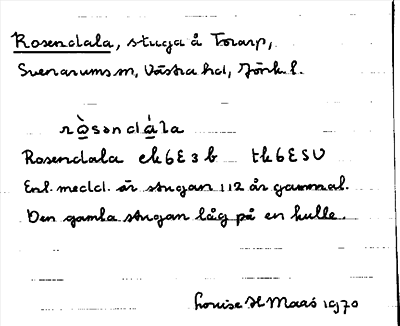 Rosendala, stuga å Torarp,
Svenarums sn, Västra hd, Jönk. l.
ròsəndála
Rosendala ek 6E 3 b tk 6E SV
Enl. medd. är stugan 112 år gammal.
Den gamla stugan låg på en kulle.
Louise H Maas 1970